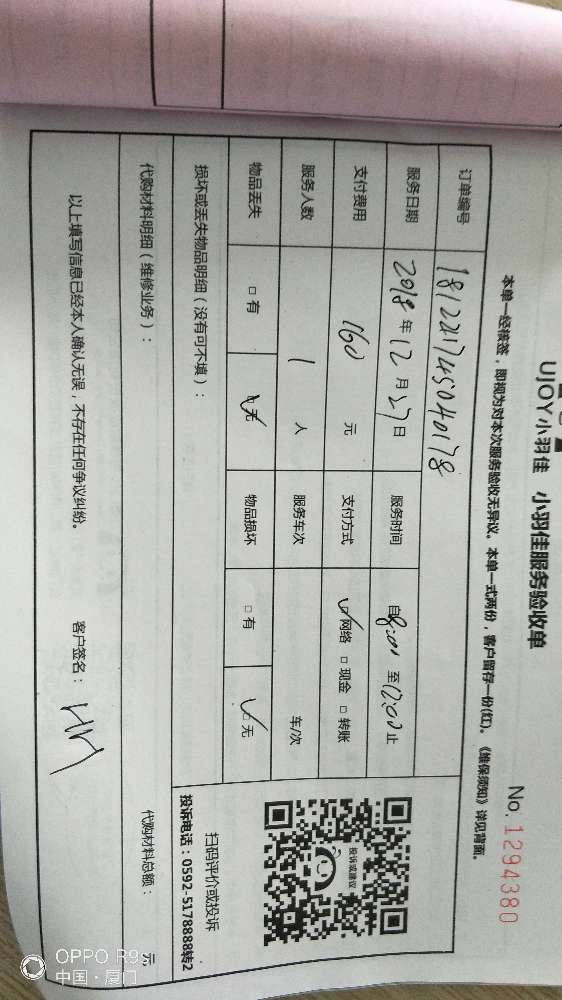 UJOY小羽佳 小羽佳服务验收单
No. 1294380
本单一经核签，即视为对本次服务验收无异议。本单一式两份，客户留存一份(红)。《维保须知》详见背面。
订单编号
服务日期 2018年12月27日 服务时间 自8:00至12:00止
支付费用 160元 支付方式 ☑网络 □现金 □转账
服务人数 1人 服务车次 车/次
物品丢失 □有 ☑无 物品损坏 □有 ☑无
投诉或建议
扫码评价或投诉
投诉电话：0592-5178888转2
损坏或丢失物品明细（没有可不填）：
代购材料明细（维修业务）：
代购材料总额： 元
以上填写信息已经本人确认无误，不存在任何争议纠纷。 客户签名：
OPPO R9s
中国·厦门